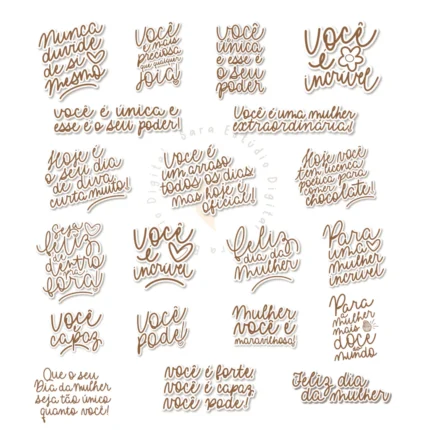 Nunca
duvide
de si
mesmo
Você
é mais
preciosa
que qualquer
joia!
Você
única
e esse é
o seu
poder
Você
é
incrível
você é única e
esse é o seu poder!
Você é uma mulher
extraordinária!
Hoje é
o seu dia
de diva
curta muito!
Você é
um arraso
todos os dias
mas hoje é
oficial!
Hoje você
tem licença
poética para
comer
chocolate!
Seja
feliz
de dentro
fora!
Você
é
incrível
Feliz
dia da
mulher
Para
uma
mulher
incrível
Você
é
capaz
Você
pode!
Mulher
você é
maravilhosa!
Para
a mulher
mais
doce
mundo
Que o seu
Dia da mulher
seja tão único
quanto você!
você é forte
você é capaz
você pode!
Feliz dia
da mulher